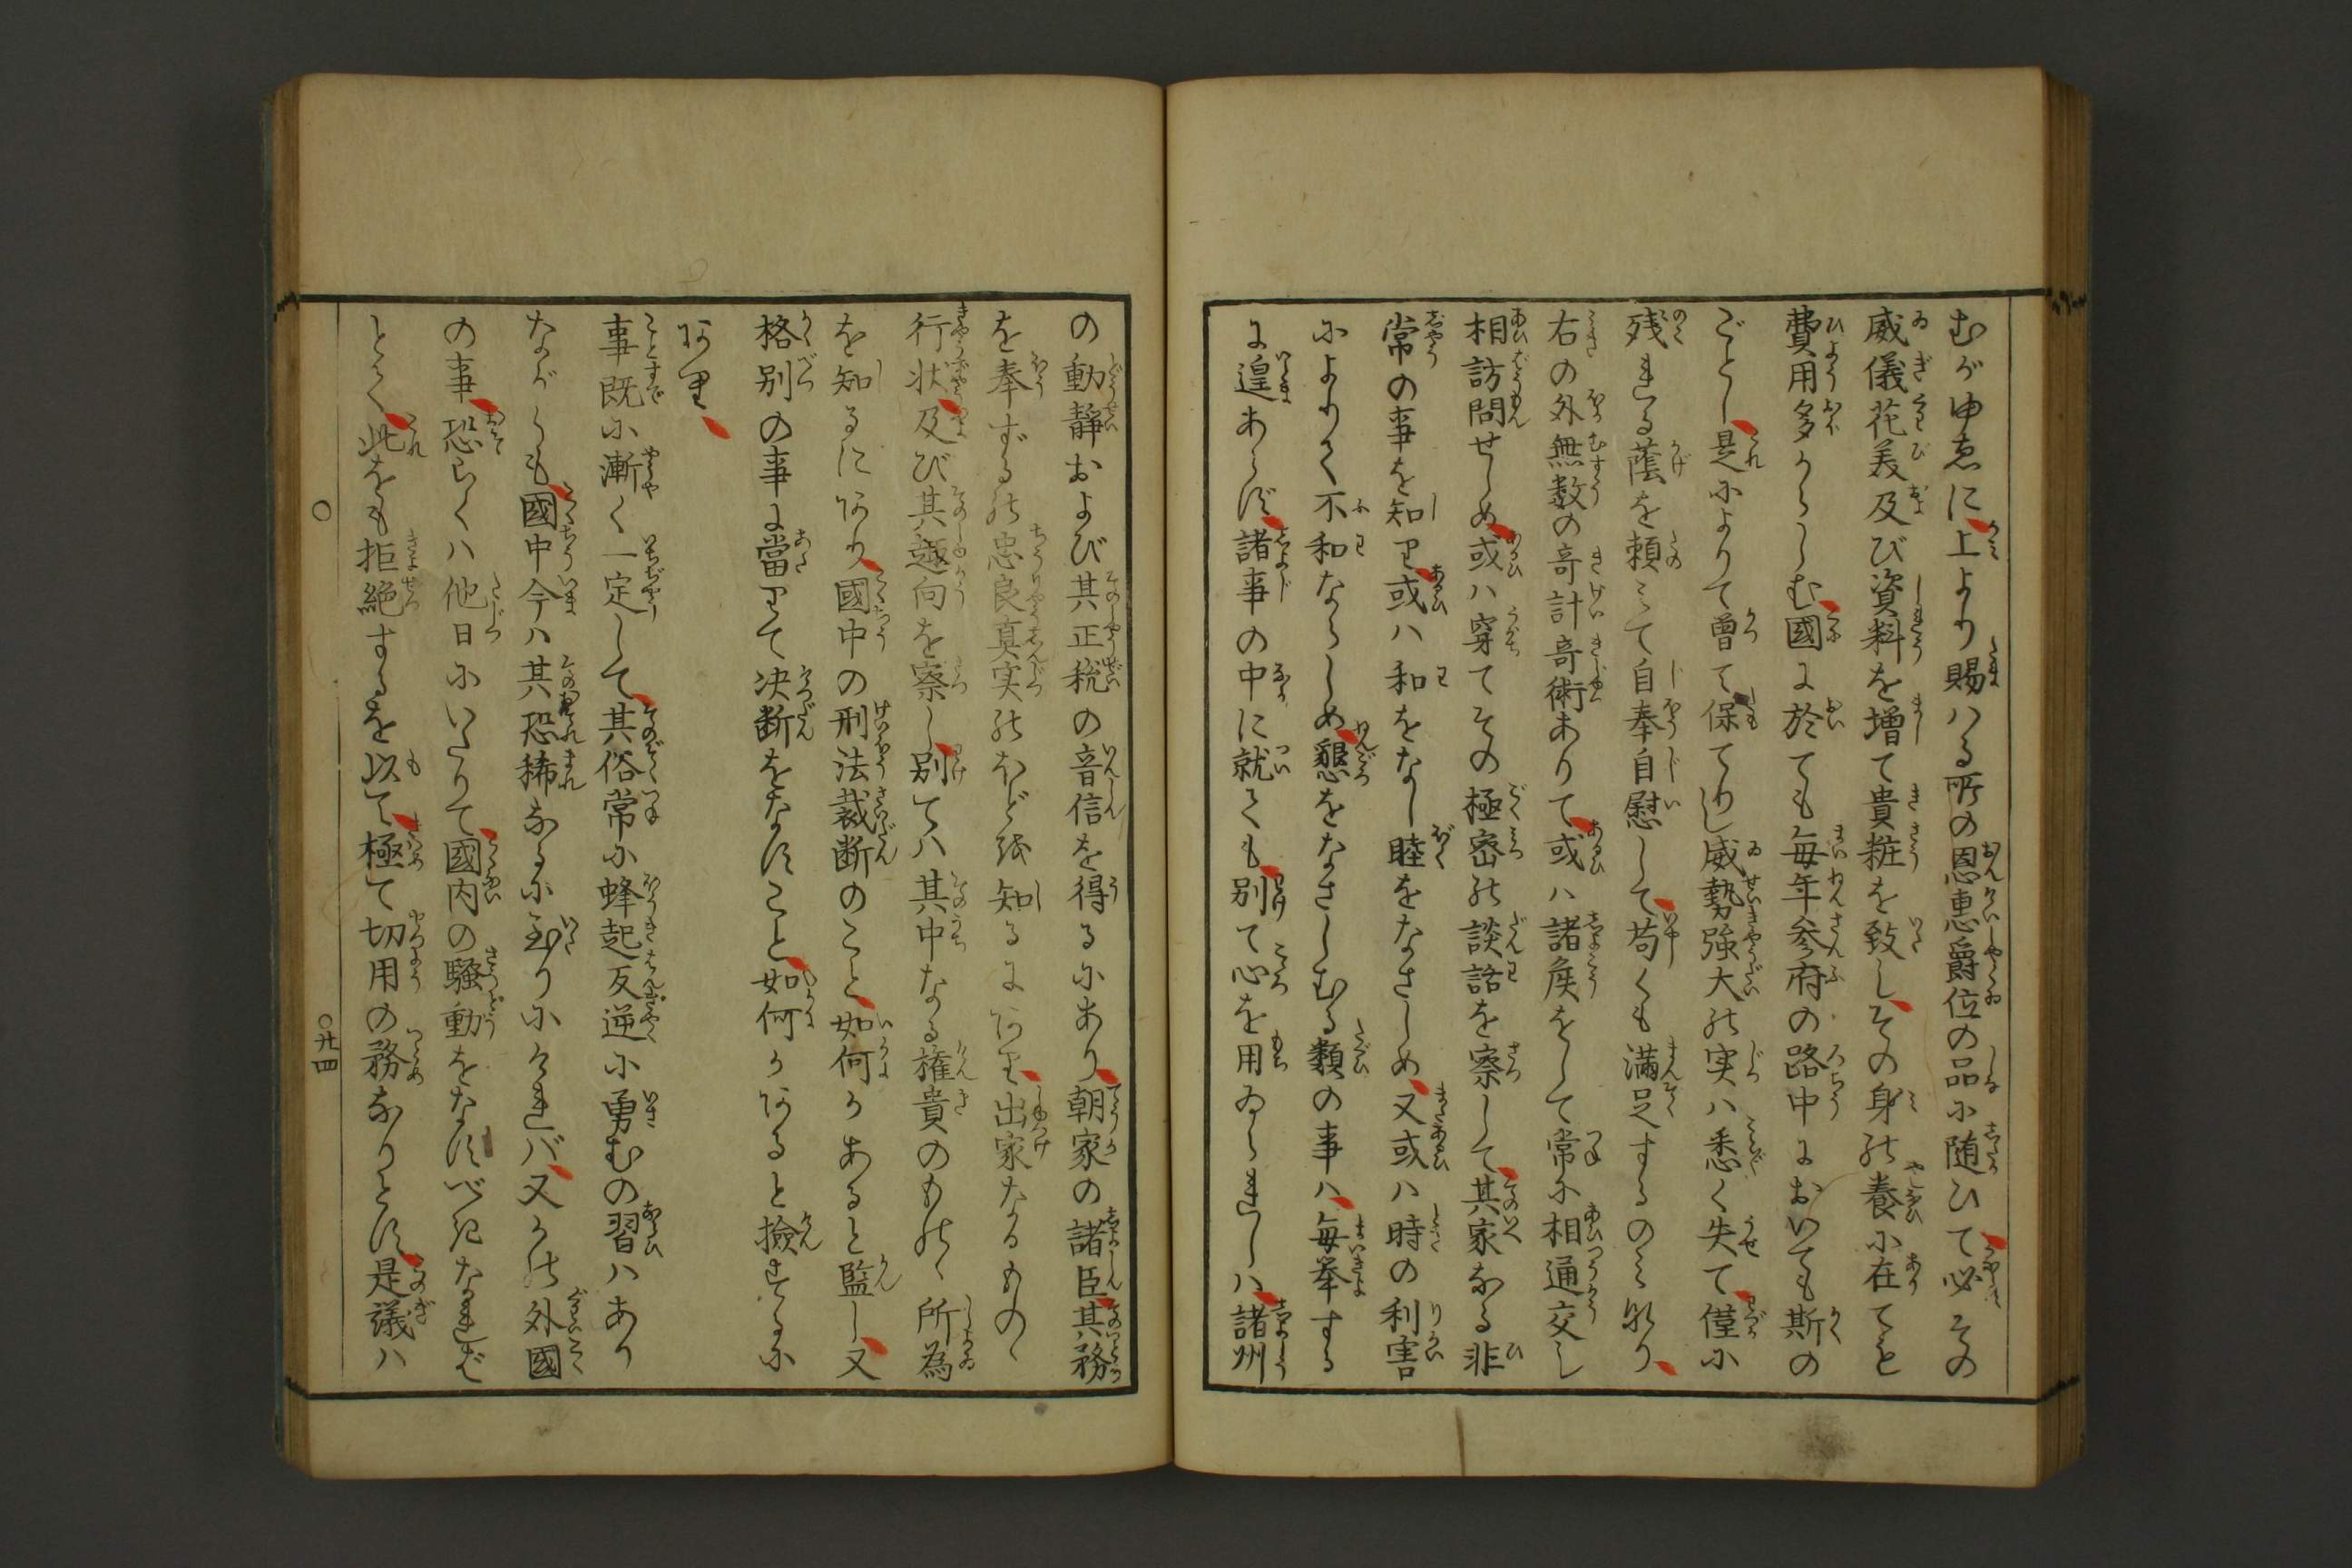 むがゆゑに上より賜ハる所の恩惠爵位の品に随ひて必その
威儀花美及び資料を増て貴粧を致しその身の養に在ても
費用多からしむ國に於ても毎年参府の路中においても斯の
ごとし是によりて曽て保てりし威勢強大の実ハ悉く失て僅に
残れる蔭を頼ミて自奉自慰して苟くも満足するのミ也り
右の外無数の奇計奇術ありて或ハ諸侯をして常に相通交し
相訪問せしめ或ハ穿てその極密の談話を察して其家なる非
常の事を知り或ハ和をなし睦をなさしめ又或ハ時の利害
によりて不和ならしめ懇をなさしむる類の事ハ毎挙する
に遑あらず諸事の中に就ても別て心を用ゐられしハ諸州
の動静および其正税の音信を得るにあり朝家の諸臣其務
を奉ずるの忠良真実のほどを知るにあり出家なるものゝ
行状及び其趣向を察し別てハ其中なる権貴のものゝ所為
を知るにあり國中の刑法裁断のこと如何かあると監し又
格別の事に當りて决断をなすこと如何かあると撿するに
あり
事既に漸く一定して其俗常に蜂起反逆に勇むの習ハあり
ながらも國中今ハ其恐稀なるに至りにけれバ又かの外國
の事恐らくハ他日にいたりて國内の騒動をなすべきなれど
とて此をも拒絶するを以て極て切用の務なりとす是議ハ
〇 〇廿四